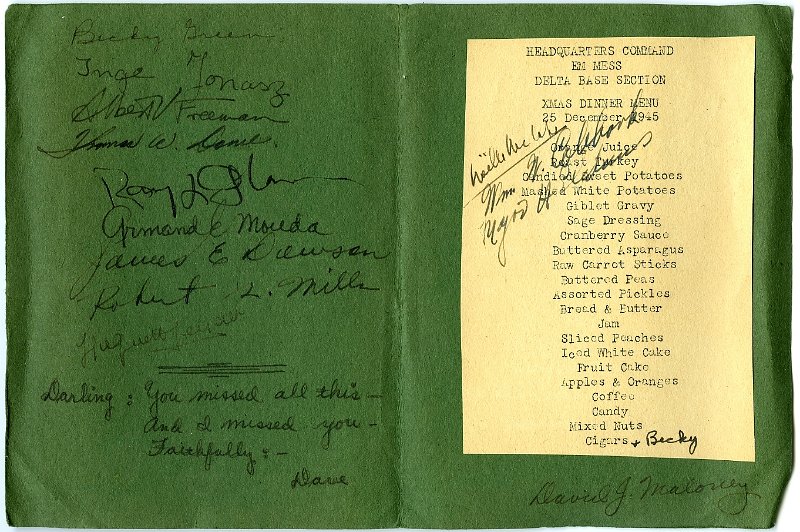 Becky Green
Inge Tonasz
Albert V Freeman
Thomas W.
Armand C Mouda
James E Dawson
Robert L. Mills
Darling : You missed all this —
And I missed you —
Faithfully : —
Dave
HEADQUARTERS COMMAND
EM MESS
DELTA BASE SECTION
XMAS DINNER MENU
25 December 1945
Orange Juice
Roast Turkey
Candied Sweet Potatoes
Mashed White Potatoes
Giblet Gravy
Sage Dressing
Cranberry Sauce
Buttered Asparagus
Raw Carrot Sticks
Buttered Peas
Assorted Pickles
Bread & Butter
Jam
Sliced Peaches
Iced White Cake
Fruit Cake
Apples & Oranges
Coffee
Candy
Mixed Nuts
Cigars + Becky
David J. Maloney